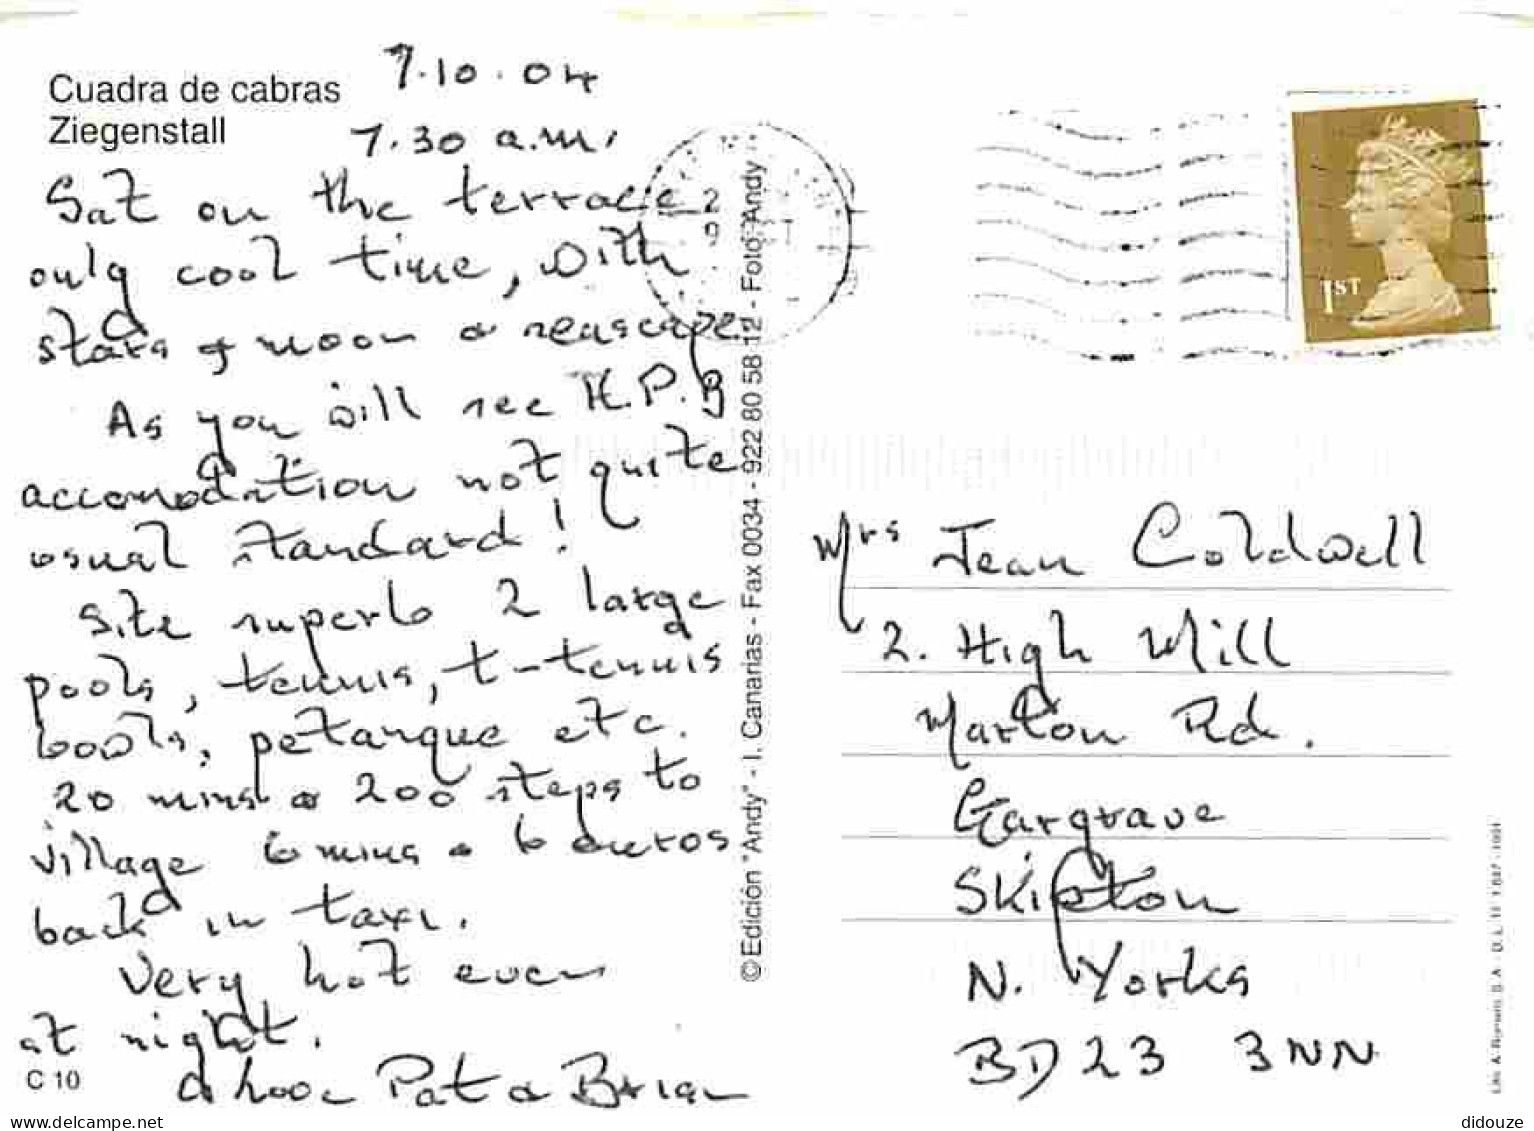 Cuadra de cabras
Ziegenstall
7.10.04
7.30 a.m.
Sat on the terrace
only cool time, with
stars & moon & seascape.
As you will see H.P.B
accomodation not quite
usual standard!
Site superb 2 large
pools, tennis, t-tennis
bowls, petanque etc.
20 mins & 200 steps to
village 6 mins & 6 euros
back in taxi.
Very hot even
at night.
love Pat & Brian
C 10
©Edición "Andy" - I. Canarias - Fax 0034 - 922 80 58 12 - Foto: Andy
2
9
1ST
Mrs Jean Coldwell
2. High Mill
Marton Rd.
Gargrave
Skipton
N. Yorks
BD23 3NN
delcampe.net
didouze